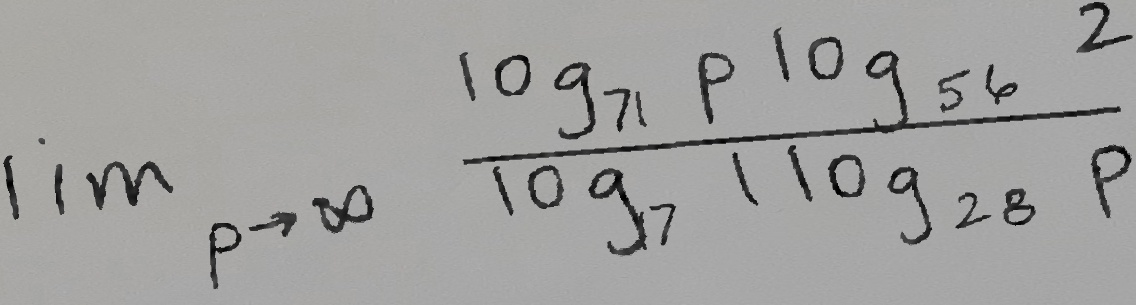 \lim_{p \to \infty} \frac{\log_{71} p \log_{56} 2}{\log_{7} 1 \log_{28} p}